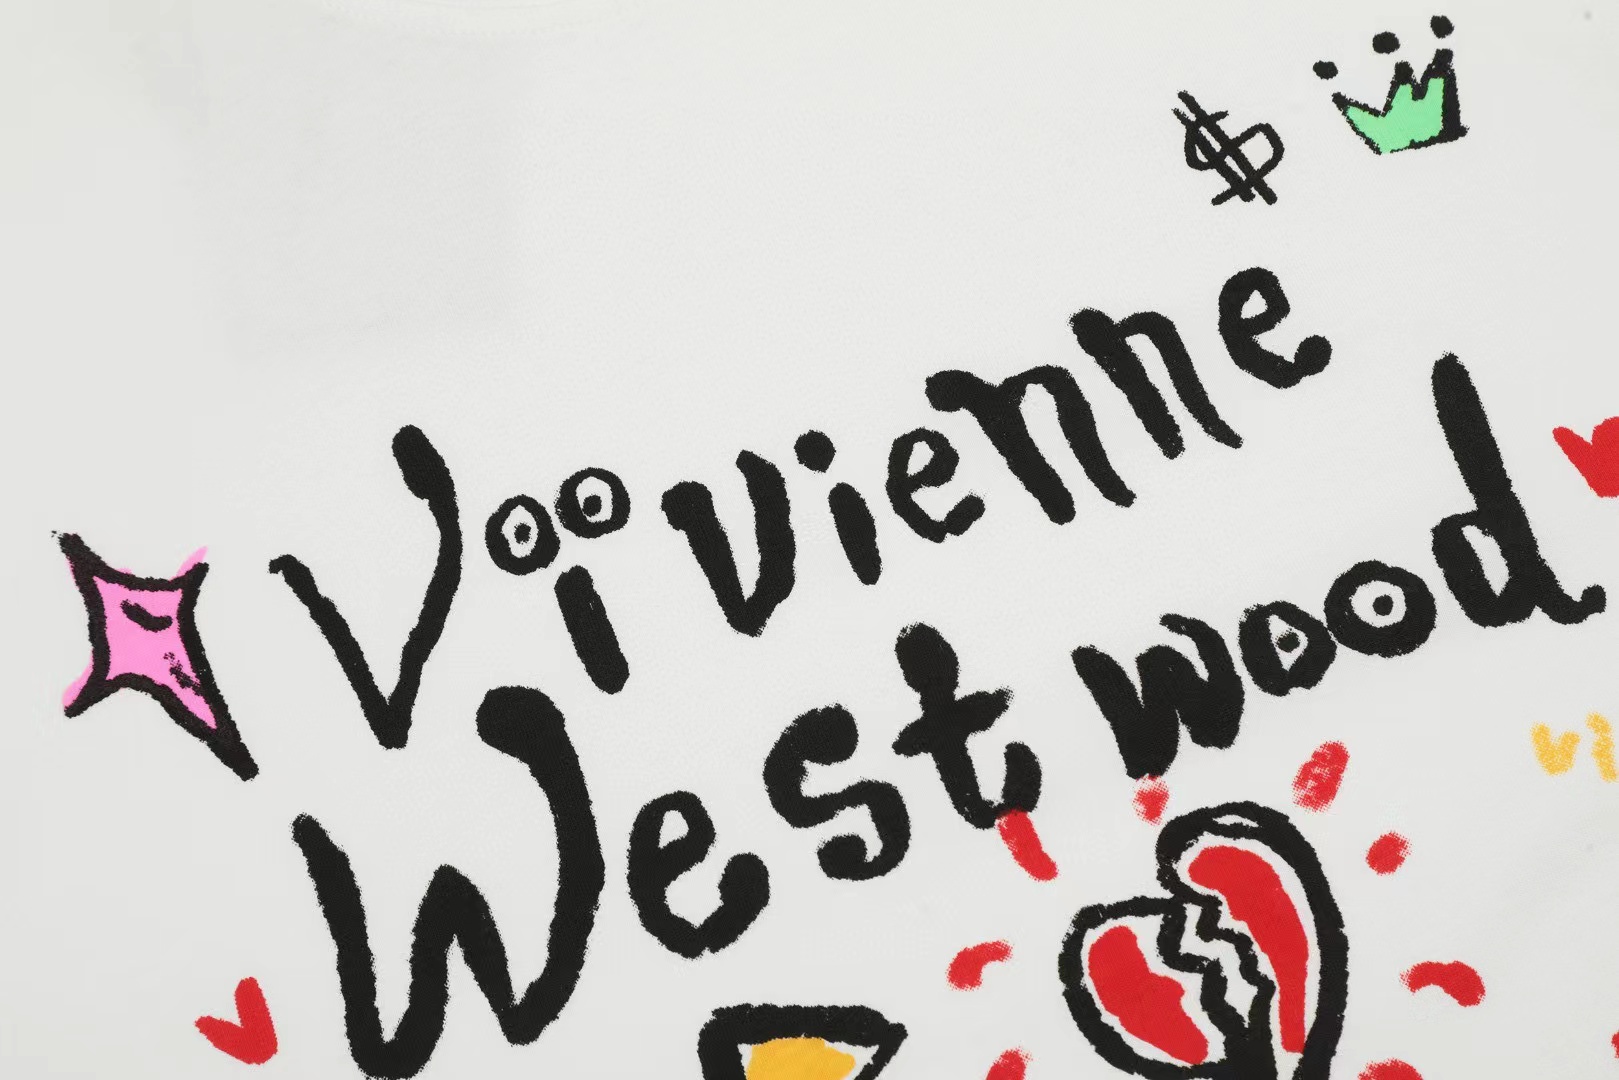 $
Vivienne
Westwood
vi